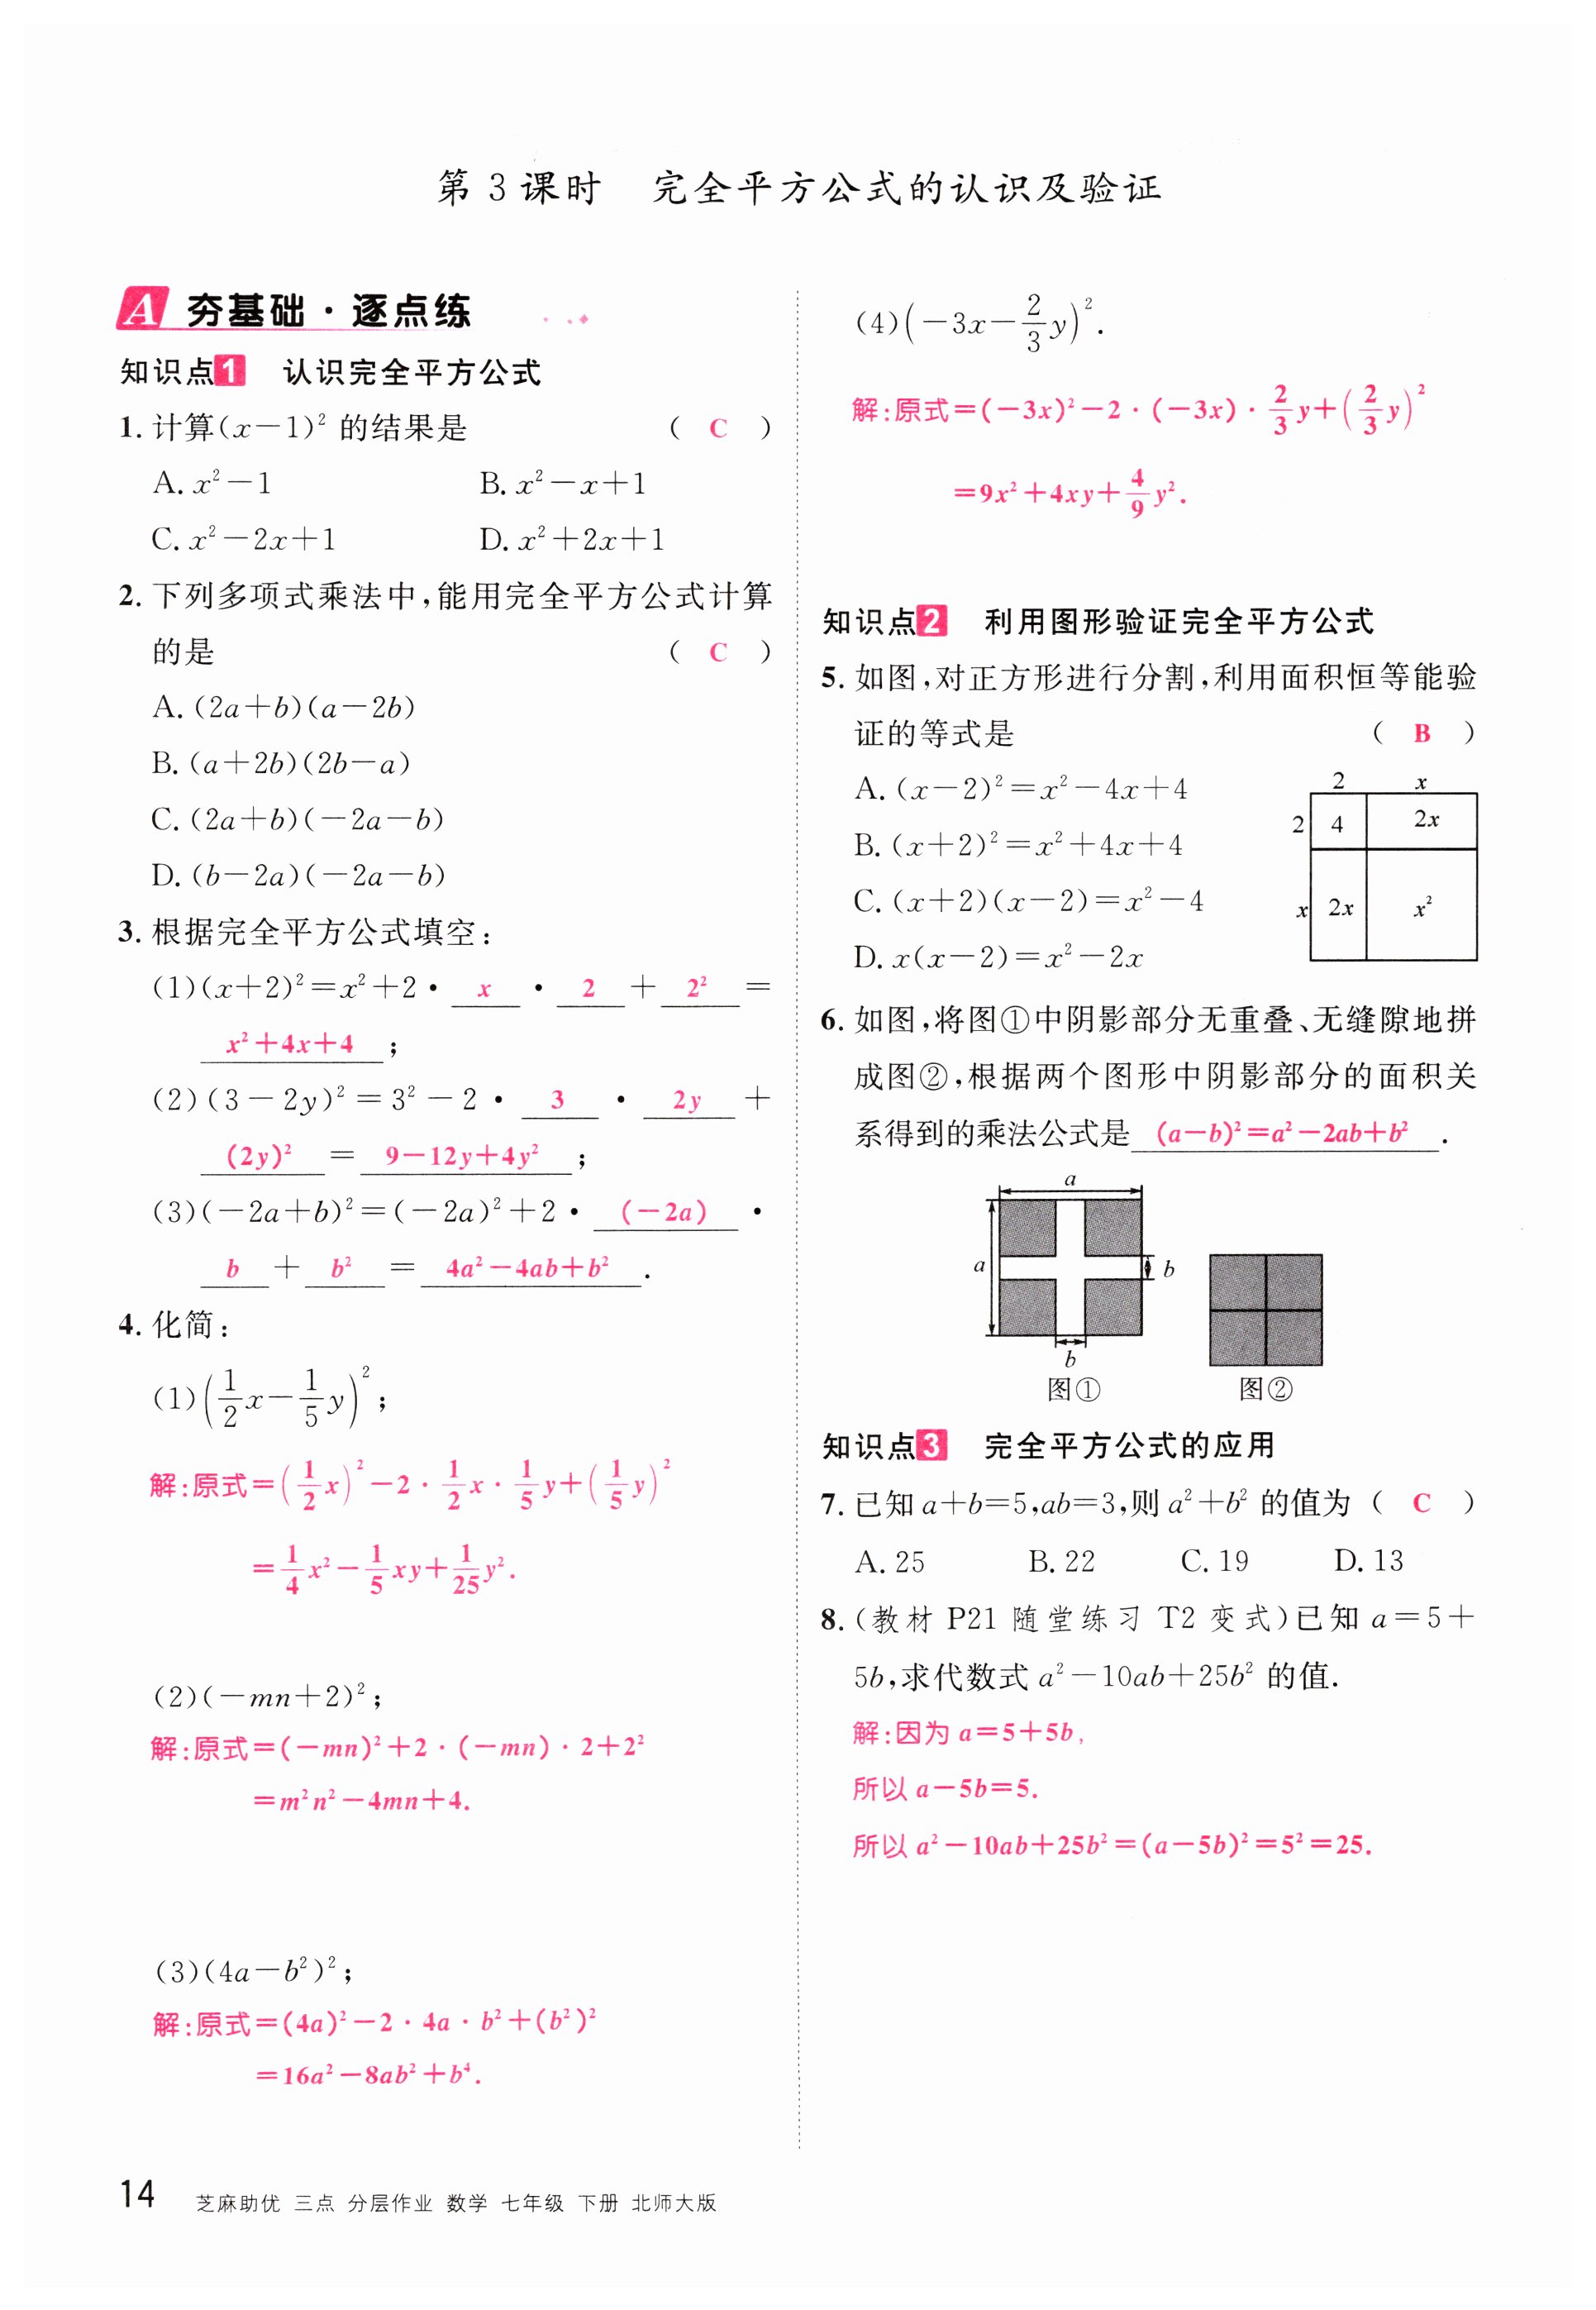 第 3 课时　完全平方公式的认识及验证
A 夯基础·逐点练
知识点1　认识完全平方公式
1. 计算(x－1)² 的结果是　（ C ）
A. x²－1　B. x²－x＋1
C. x²－2x＋1　D. x²＋2x＋1
2. 下列多项式乘法中,能用完全平方公式计算
的是　（ C ）
A. (2a＋b)(a－2b)
B. (a＋2b)(2b－a)
C. (2a＋b)(－2a－b)
D. (b－2a)(－2a－b)
3. 根据完全平方公式填空:
(1)(x＋2)²＝x²＋2· x · 2 ＋ 2² ＝
x²＋4x＋4 ;
(2)(3－2y)²＝3²－2· 3 · 2y ＋
(2y)² ＝ 9－12y＋4y² ;
(3)(－2a＋b)²＝(－2a)²＋2· (－2a) ·
b ＋ b² ＝ 4a²－4ab＋b² .
4. 化简:
(1)(1/2 x－1/5 y)²;
解:原式＝(1/2 x)²－2·1/2 x·1/5 y＋(1/5 y)²
＝1/4 x²－1/5 xy＋1/25 y².
(2)(－mn＋2)²;
解:原式＝(－mn)²＋2·(－mn)·2＋2²
＝m²n²－4mn＋4.
(3)(4a－b²)²;
解:原式＝(4a)²－2·4a·b²＋(b²)²
＝16a²－8ab²＋b⁴.
(4)(－3x－2/3 y)².
解:原式＝(－3x)²－2·(－3x)·2/3 y＋(2/3 y)²
＝9x²＋4xy＋4/9 y².
知识点2　利用图形验证完全平方公式
5. 如图,对正方形进行分割,利用面积恒等能验
证的等式是　（ B ）
A. (x－2)²＝x²－4x＋4
B. (x＋2)²＝x²＋4x＋4
C. (x＋2)(x－2)＝x²－4
D. x(x－2)＝x²－2x
2　x
2　4　2x
x　2x　x²
6. 如图,将图①中阴影部分无重叠、无缝隙地拼
成图②,根据两个图形中阴影部分的面积关
系得到的乘法公式是 (a－b)²＝a²－2ab＋b² .
a
a　b
b
图①　图②
知识点3　完全平方公式的应用
7. 已知 a＋b＝5,ab＝3,则 a²＋b² 的值为（ C ）
A. 25　B. 22　C. 19　D. 13
8. (教材 P21 随堂练习 T2 变式)已知 a＝5＋
5b,求代数式 a²－10ab＋25b² 的值.
解:因为 a＝5＋5b,
所以 a－5b＝5.
所以 a²－10ab＋25b²＝(a－5b)²＝5²＝25.
14　芝麻助优 三点 分层作业 数学 七年级 下册 北师大版